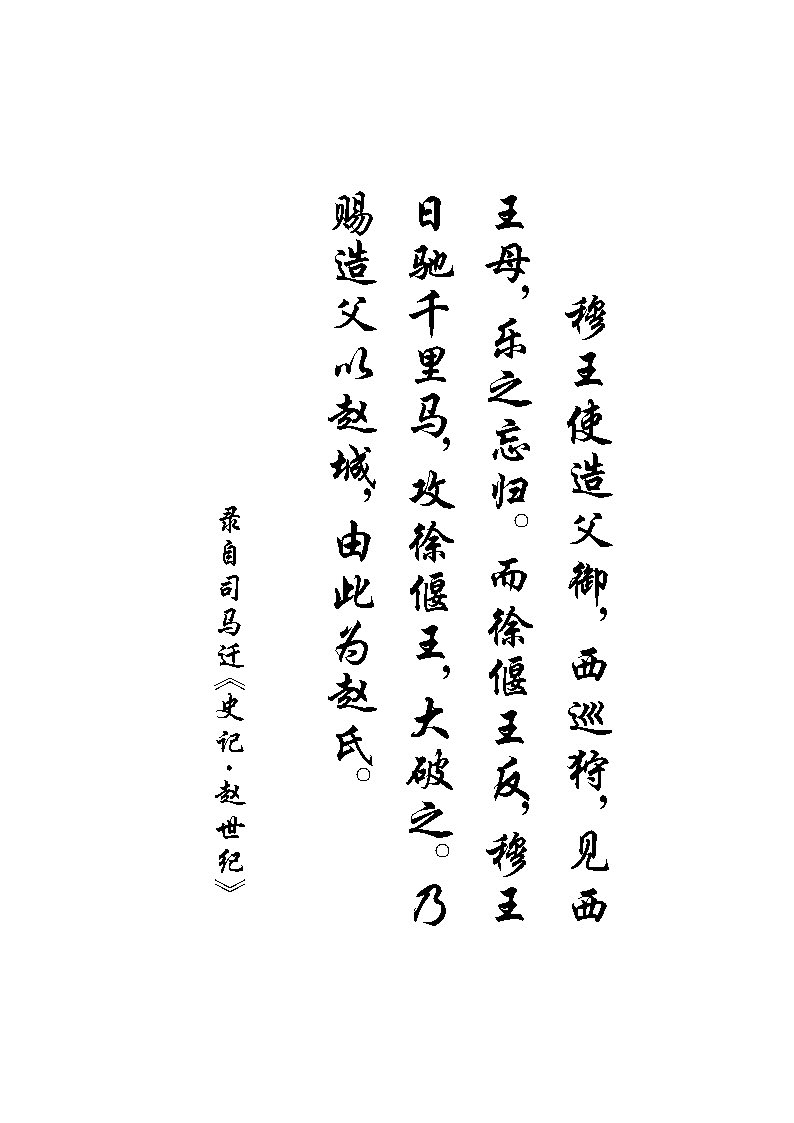 穆王使造父御，西巡狩，见西
王母，乐之忘归。而徐偃王反，穆王
日驰千里马，攻徐偃王，大破之。乃
赐造父以赵城，由此为赵氏。
录自司马迁《史记·赵世纪》